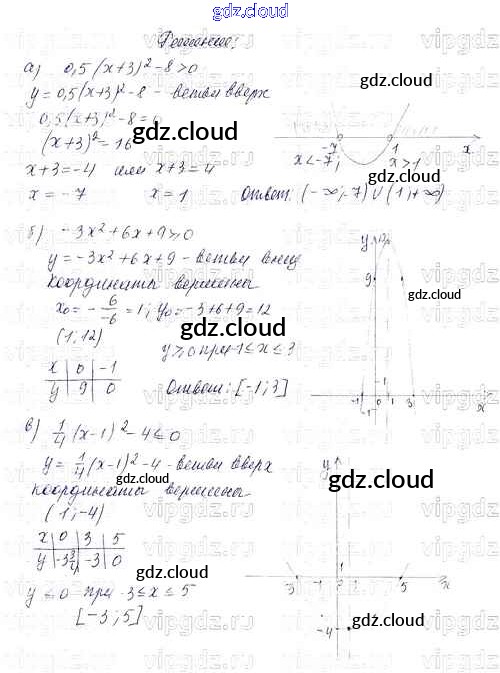 gdz.cloud
Решение:
а) 0,5(x+3)² - 8 > 0
y = 0,5(x+3)² - 8 - ветви вверх
0,5(x+3)² - 8 = 0
(x+3)² = 16
x+3 = -4 или x+3 = 4
x = -7 x = 1 Ответ: (-∞; -7) ∪ (1; +∞)
-7 1 x
x < -7; x > 1
gdz.cloud
б) -3x² + 6x + 9 ≥ 0
y = -3x² + 6x + 9 - ветви вниз
координаты вершины
x₀ = - 6/-6 = 1; y₀ = -3+6+9 = 12
(1; 12)
y ≥ 0 при -1 ≤ x ≤ 3
x 0 -1
y 9 0
Ответ: [-1; 3]
y
9
1
-1 0 1 3 x
gdz.cloud
в) 1/4 (x-1)² - 4 ≤ 0
y = 1/4 (x-1)² - 4 - ветви вверх
координаты вершины
(1; -4)
x 0 3 5
y -3 3/4 -3 0
y ≤ 0 при -3 ≤ x ≤ 5
[-3; 5]
y
1
-3 -1 0 1 5 x
-4
gdz.cloud
gdz.cloud
gdz.cloud
gdz.cloud
gdz.cloud
gdz.cloud
vipgdz